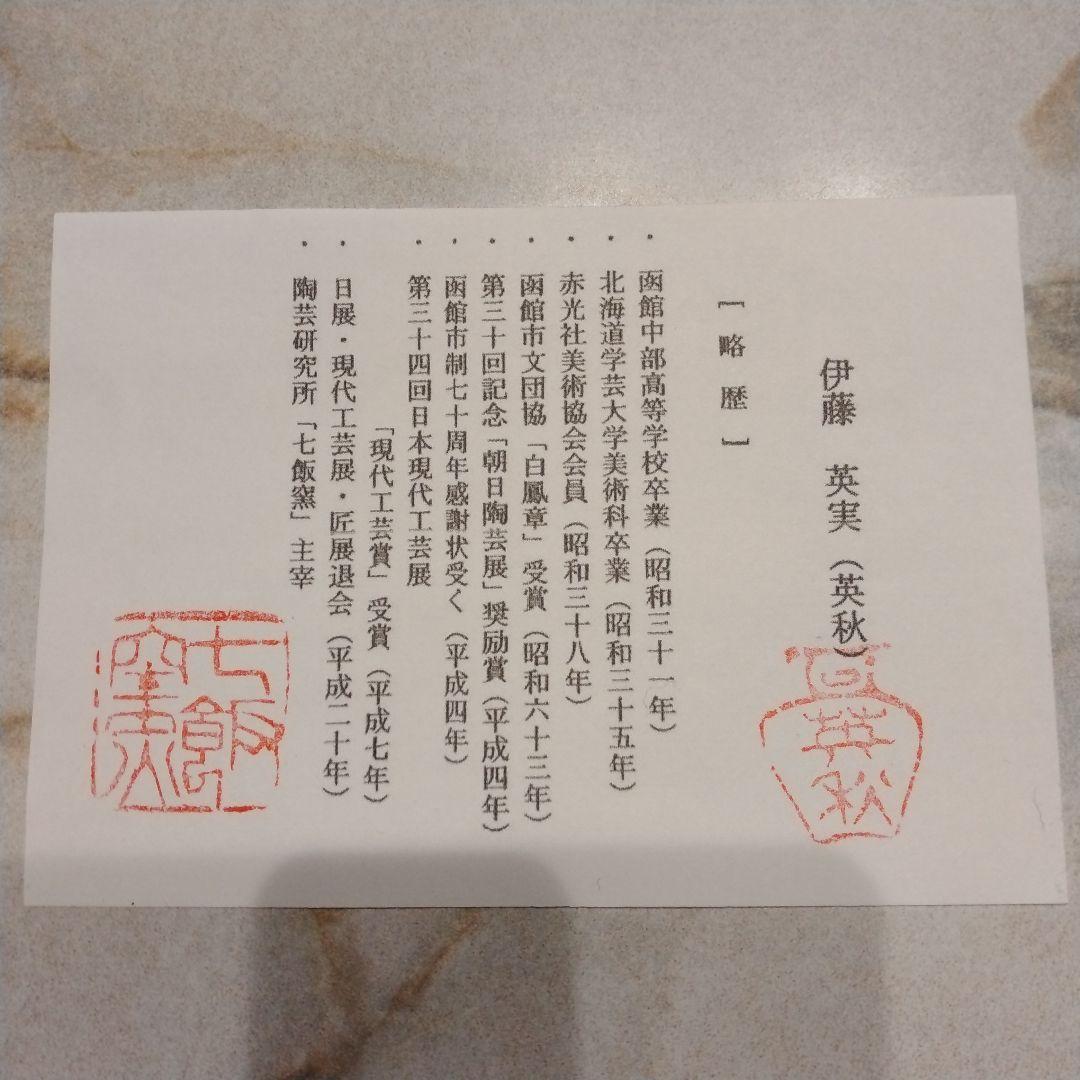 伊藤 英実(英秋)
[略歴]
・函館中部高等学校卒業(昭和三十一年)
・北海道学芸大学美術科卒業(昭和三十五年)
・赤光社美術協会会員(昭和三十八年)
・函館市文団協「白鳳章」受賞(昭和六十三年)
・第三十回記念「朝日陶芸展」奨励賞(平成四年)
・函館市制七十周年感謝状受く(平成四年)
・第三十四回日本現代工芸展
「現代工芸賞」受賞(平成七年)
・日展・現代工芸展・匠展退会(平成二十年)
・陶芸研究所「七飯窯」主宰
英秋
七飯
窯